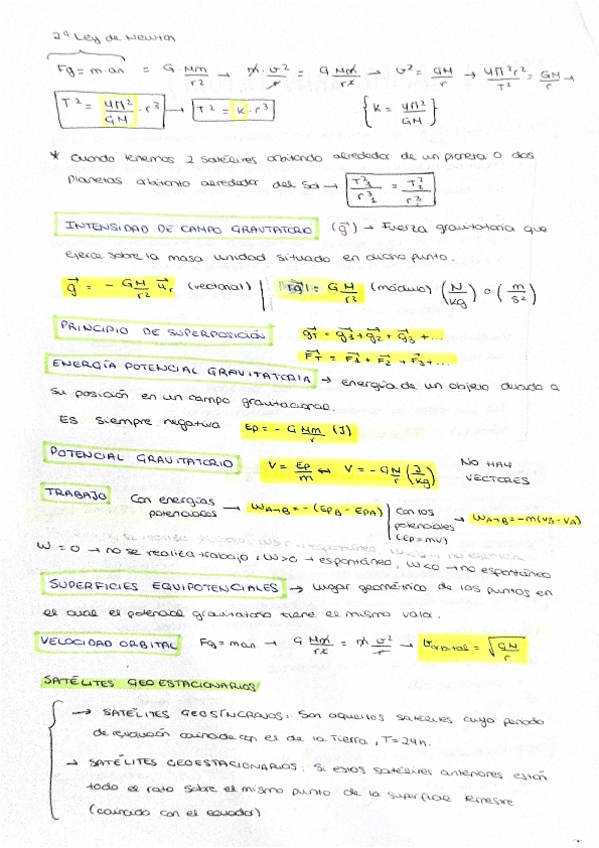 2ª Ley de Newton
Fg = m·an = G Mm/r² → m·v²/r = G Mm/r² → v² = GM/r → 4π²r²/T² = GM/r →
T² = 4π²/GM · r³ → T² = K · r³ { K = 4π²/GM }
* Cuando tenemos 2 satélites orbitando alrededor de un planeta o dos
planetas orbitando alrededor del Sol → T₁²/r₁³ = T₂²/r₂³
INTENSIDAD DE CAMPO GRAVITATORIO (g⃗) → Fuerza gravitatoria que
ejerce sobre la masa unidad situado en dicho punto.
g⃗ = - GM/r² u⃗r (vectorial) | |g⃗| = G M/r² (módulo) (N/kg) o (m/s²)
PRINCIPIO DE SUPERPOSICIÓN g⃗T = g⃗1 + g⃗2 + g⃗3 + ...
F⃗T = F⃗1 + F⃗2 + F⃗3 + ...
ENERGÍA POTENCIAL GRAVITATORIA → energía de un objeto debido a
su posición en un campo gravitacional.
Es siempre negativa Ep = - G Mm/r (J)
POTENCIAL GRAVITATORIO V = Ep/m ↔ V = - G M/r (J/kg) NO HAY
VECTORES
TRABAJO Con energías potenciales → WA→B = -(EpB - EpA) | Con los potenciales (Ep = mV) → WA→B = -m(VB - VA)
W = 0 → no se realiza trabajo, W>0 → espontáneo, W<0 → no espontáneo
SUPERFICIES EQUIPOTENCIALES → lugar geométrico de los puntos en
el cual el potencial gravitatorio tiene el mismo valor.
VELOCIDAD ORBITAL Fg = man → G Mm/r² = m v²/r → Vorbital = √(GM/r)
SATÉLITES GEOESTACIONARIOS
→ SATÉLITES GEOSÍNCRONOS: Son aquellos satélites cuyo periodo
de revolución coincide con el de la Tierra, T=24h.
→ SATÉLITES GEOESTACIONARIOS: Si estos satélites anteriores están
todo el rato sobre el mismo punto de la superficie terrestre
(coincido con el ecuador)